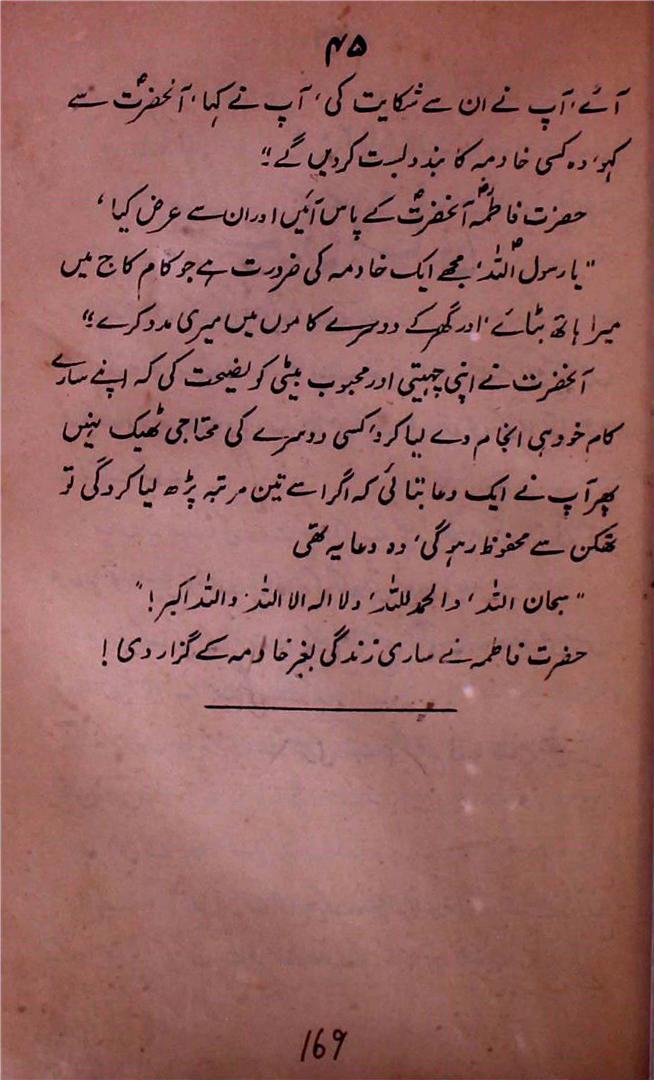 ۴۵
آئے، آپ نے ان سے شکایت کی، آپ نے کہا، آنحضرتؐ سے
کہو، وہ کسی خادمہ کا بندوبست کردیں گے"
حضرت فاطمہؓ آنحضرتؐ کے پاس آئیں اور ان سے عرض کیا،
"یا رسول اللہؐ، مجھے ایک خادمہ کی ضرورت ہے جو کام کاج میں
میرا ہاتھ بٹائے، اور گھر کے دوسرے کاموں میں میری مدد کرے"
آنحضرت نے اپنی چہیتی اور محبوب بیٹی کو نصیحت کی کہ اپنے سارے
کام خود ہی انجام دے لیا کرو، کسی دوسرے کی محتاجی ٹھیک نہیں
پھر آپ نے ایک دعا بتائی کہ اگر اسے تین مرتبہ پڑھ لیا کرو گی تو
تھکن سے محفوظ رہو گی، وہ دعا یہ تھی
"سبحان اللہ، والحمد للہ، ولا الہ الا اللہ، واللہ اکبر!"
حضرت فاطمہ نے ساری زندگی بغیر خادمہ کے گزار دی!
169